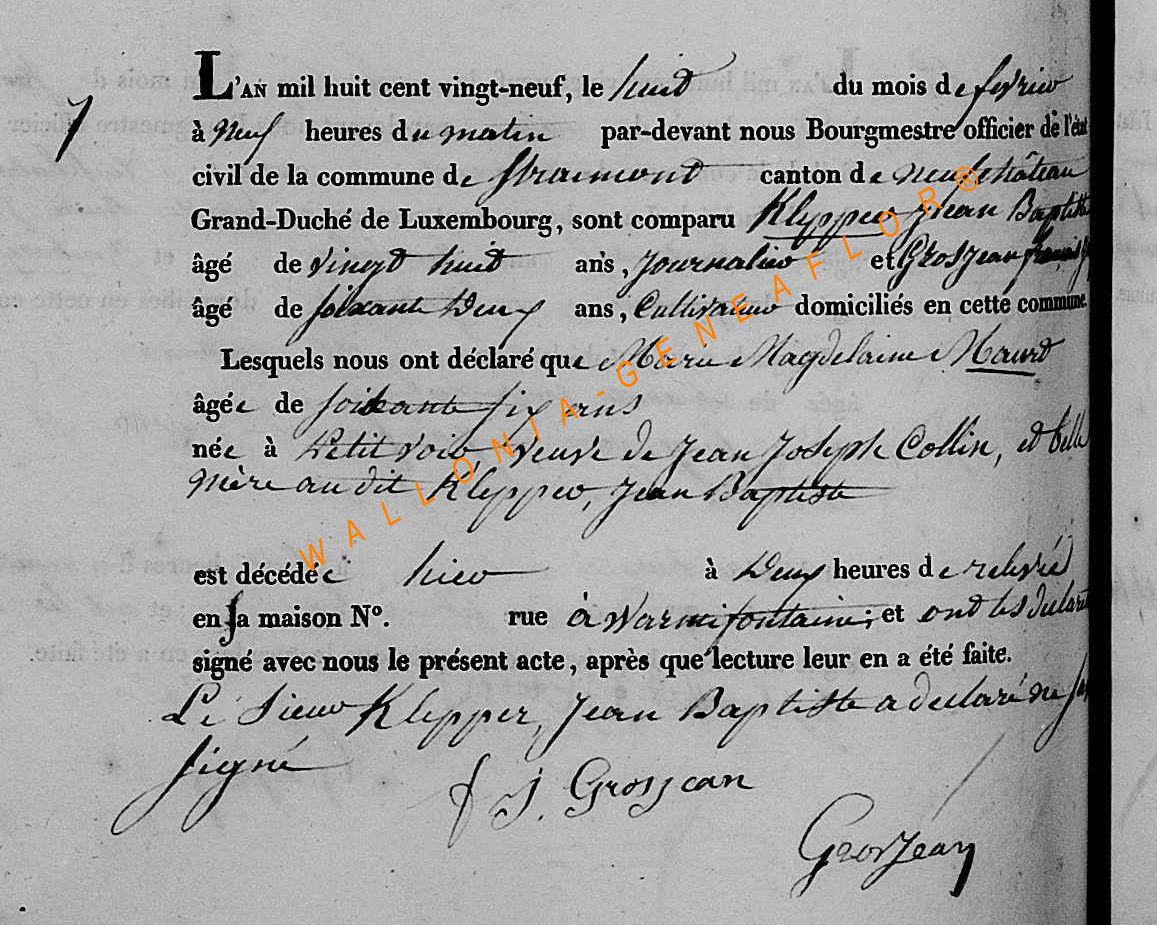 7
L'AN mil huit cent vingt-neuf, le huit du mois de fevrier
à Neuf heures du matin par-devant nous Bourgmestre officier de l'état
civil de la commune de Straimont canton de neufchâteau
Grand-Duché de Luxembourg, sont comparu Klepper Jean Baptiste
âgé de vingt huit ans, Journalier et Grosjean françois J
âgé de soixante Deux ans, Cultivateur domiciliés en cette commune.
Lesquels nous ont déclaré que Marie Magdelaine Maurd
âgée de soixante six ans
née à Petit voir veuve de Jean Joseph Collin, et belle
Mère au dit Klepper, Jean Baptiste
est décédée hier à Deux heures de relevé
en sa maison N°. rue à Warmifontaine, et ont les declarts
signé avec nous le présent acte, après que lecture leur en a été faite.
Le Sieur Klepper, Jean Baptiste a declaré ne
signé
f J. Grosjean
Grosjean
WALLONIA-GENEAFLOR®